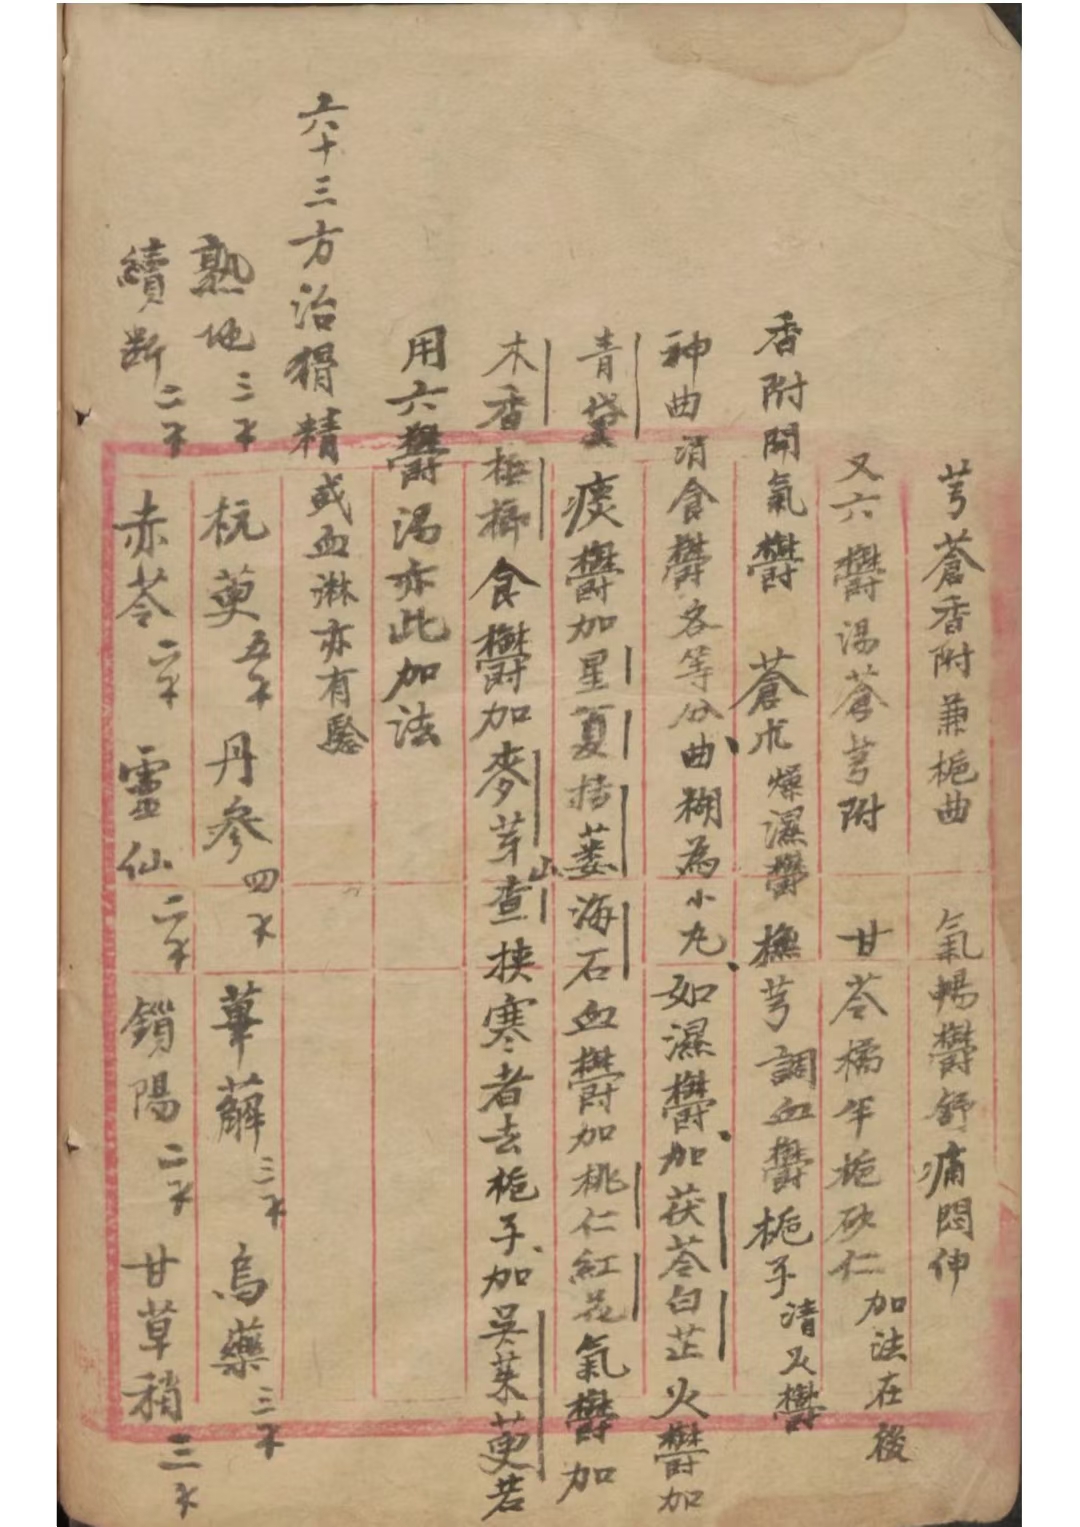 芎蒼香附兼梔曲　氣暢鬱舒痛悶伸
又六鬱湯蒼芎附　甘苓橘半梔砂仁　加法在後
香附開氣鬱　蒼朮燥濕鬱　撫芎調血鬱梔子清火鬱
神曲消食鬱各等分曲糊為小丸如濕鬱加茯苓白芷火鬱加
青黛　痰鬱加星夏括蒌海石血鬱加桃仁紅花氣鬱加
木香梹榔食鬱加麥芽山查挾寒者去梔子加吳茱萸若
用六鬱湯亦此加法
六十三方治猾精或血淋亦有驗
熟地三不　杬萸五不　丹參四不　萆薢三不　烏藥三不
續斷二不　赤苓二不　靈仙二不　鎖陽二不　甘草稍三不